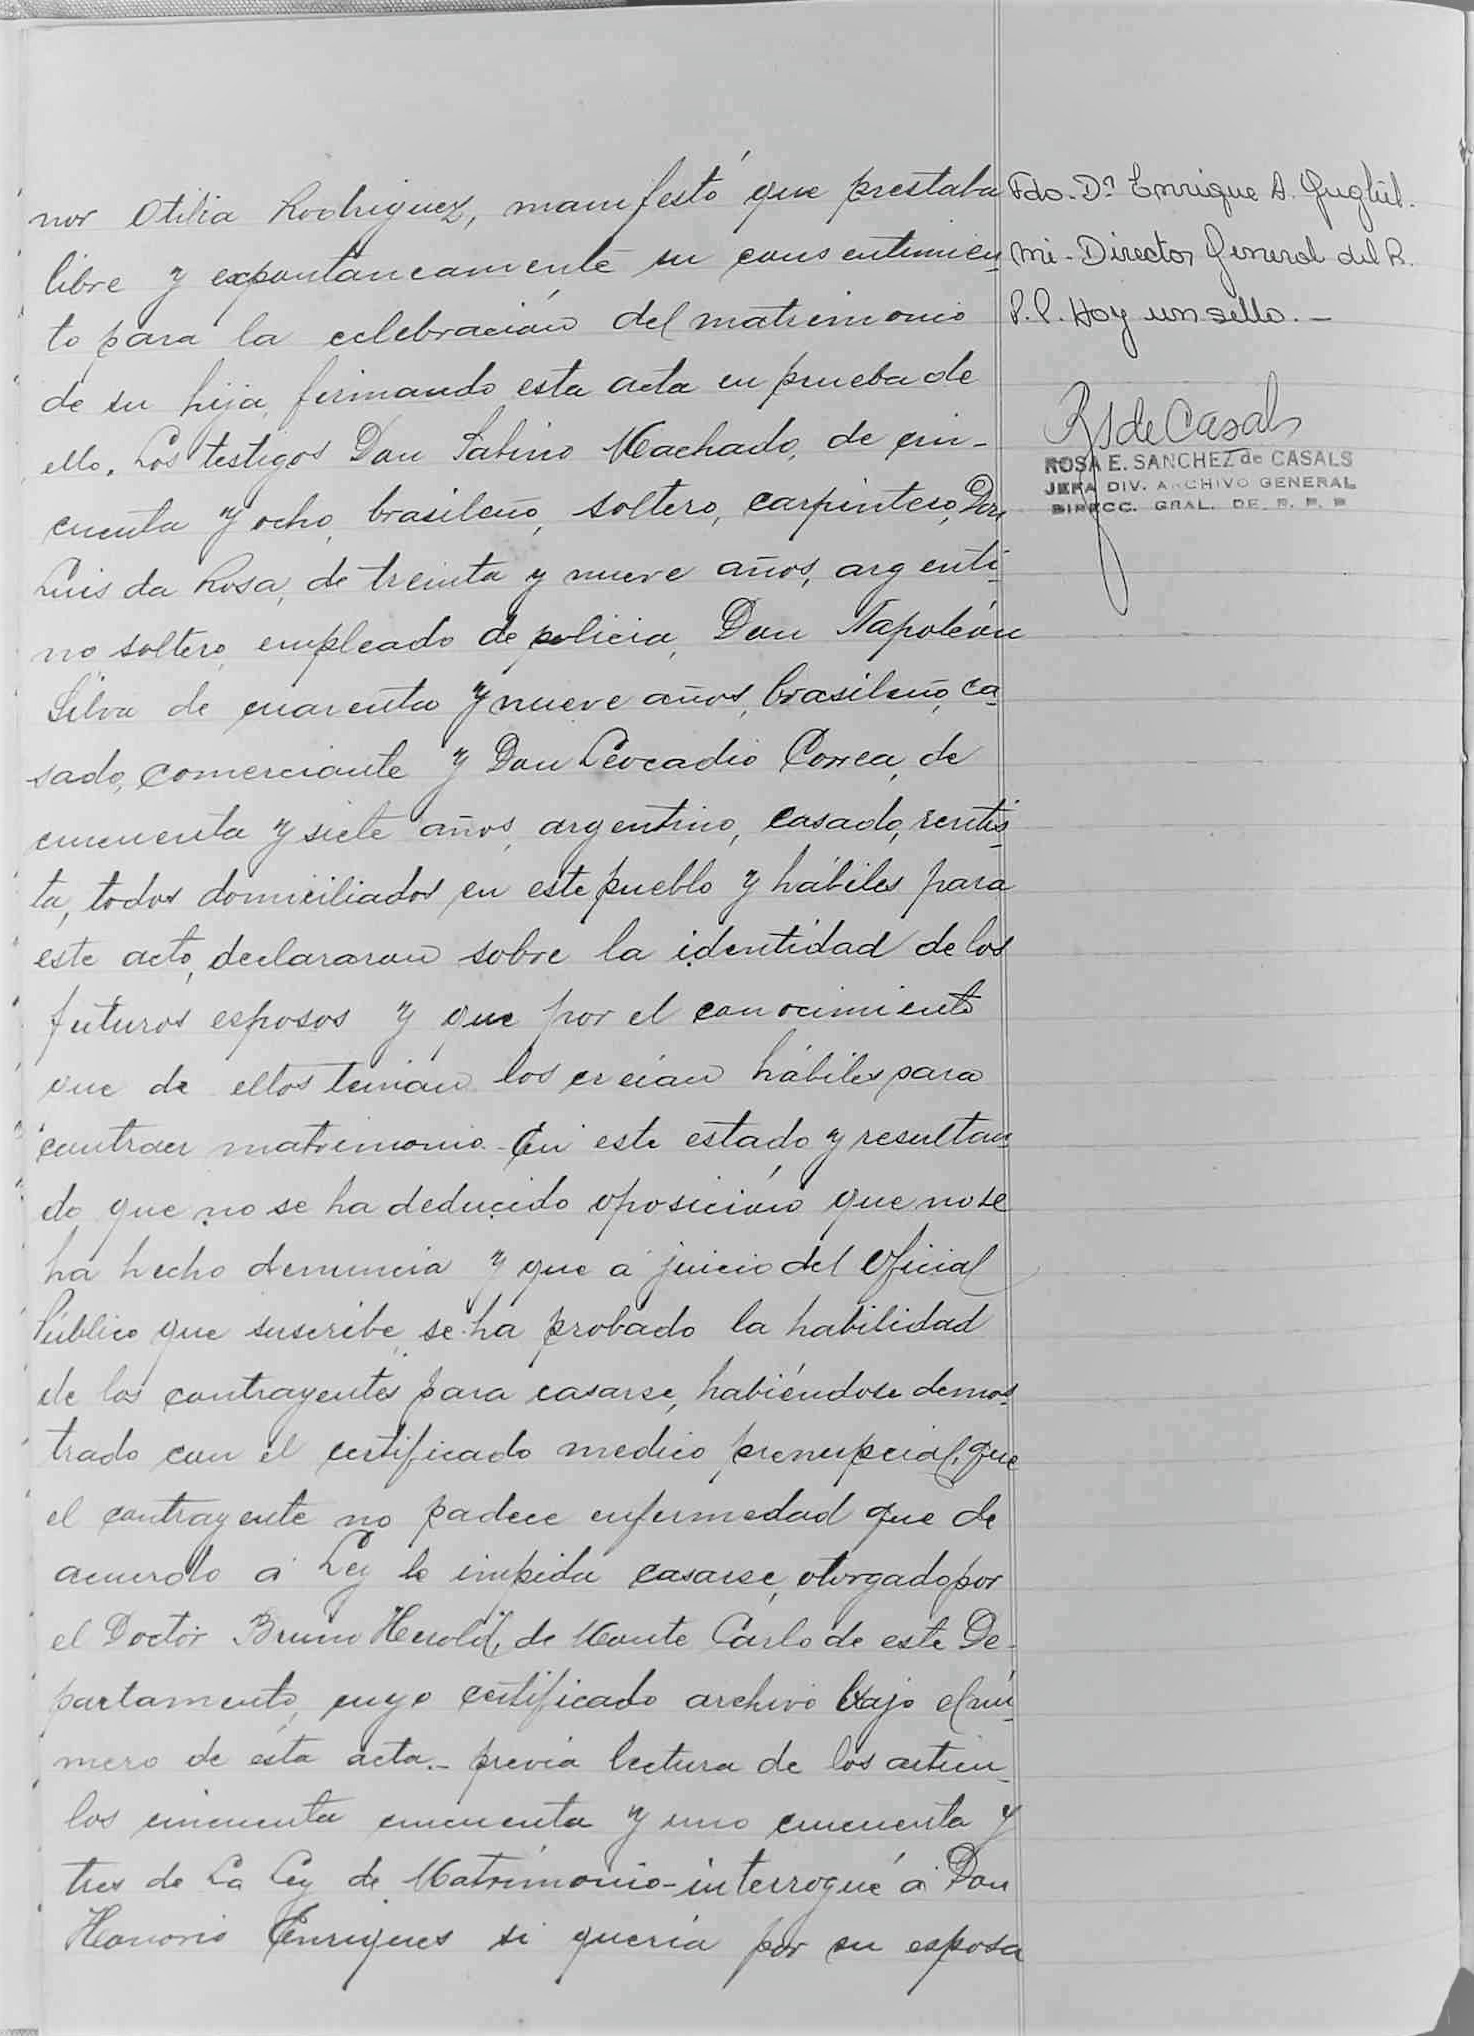 nor Otilia Rodriguez, manifestó que prestaba
libre y expontaneamente su consentimien
to para la celebración del matrimonio
de su hija, firmando esta acta en prueba de
ello. Los testigos Don Sabino Machado, de cin-
cuenta y ocho, brasileño, soltero, carpintero, Don
Luis da Rosa, de treinta y nueve años, argenti-
no soltero, empleado de policia, Don Napoleón
Silva de cuarenta y nueve años, brasileño, ca-
sado, comerciante y Don Leocadio Correa, de
cincuenta y siete años, argentino, casado, rentis-
ta, todos domiciliados en este pueblo y hábiles para
este acto, declararon sobre la identidad de los
futuros esposos y que por el conocimiento
que de ellos tenian los creían hábiles para
contraer matrimonio. En este estado y resultan-
do que no se ha deducido oposición que no se
ha hecho denuncia y que á juicio del Oficial
Público que suscribe, se ha probado la habilidad
de los contrayentes para casarse, habiéndose demos-
trado con el certificado medico prenupcial, que
el contrayente no padece enfermedad que de
acuerdo á Ley le impida casarse, otorgado por
el Doctor Bruno Herold, de Monte Carlo de este De-
partamento, cuyo certificado archivo bajo el nú-
mero de esta acta.- previa lectura de los articu-
los cincuenta cincuenta y uno cincuenta y
tres de La Ley de Matrimonio-interrogué á Don
Honorio Enriques si quería por su esposa
Fdo. Dr Enrique A.
mi - Director General del R.
P.P. Hay un sello. -
RS de Casals
ROSA E. SANCHEZ de CASALS
JEFA DIV. ARCHIVO GENERAL
DIRECC. GRAL. DE R. P. P.